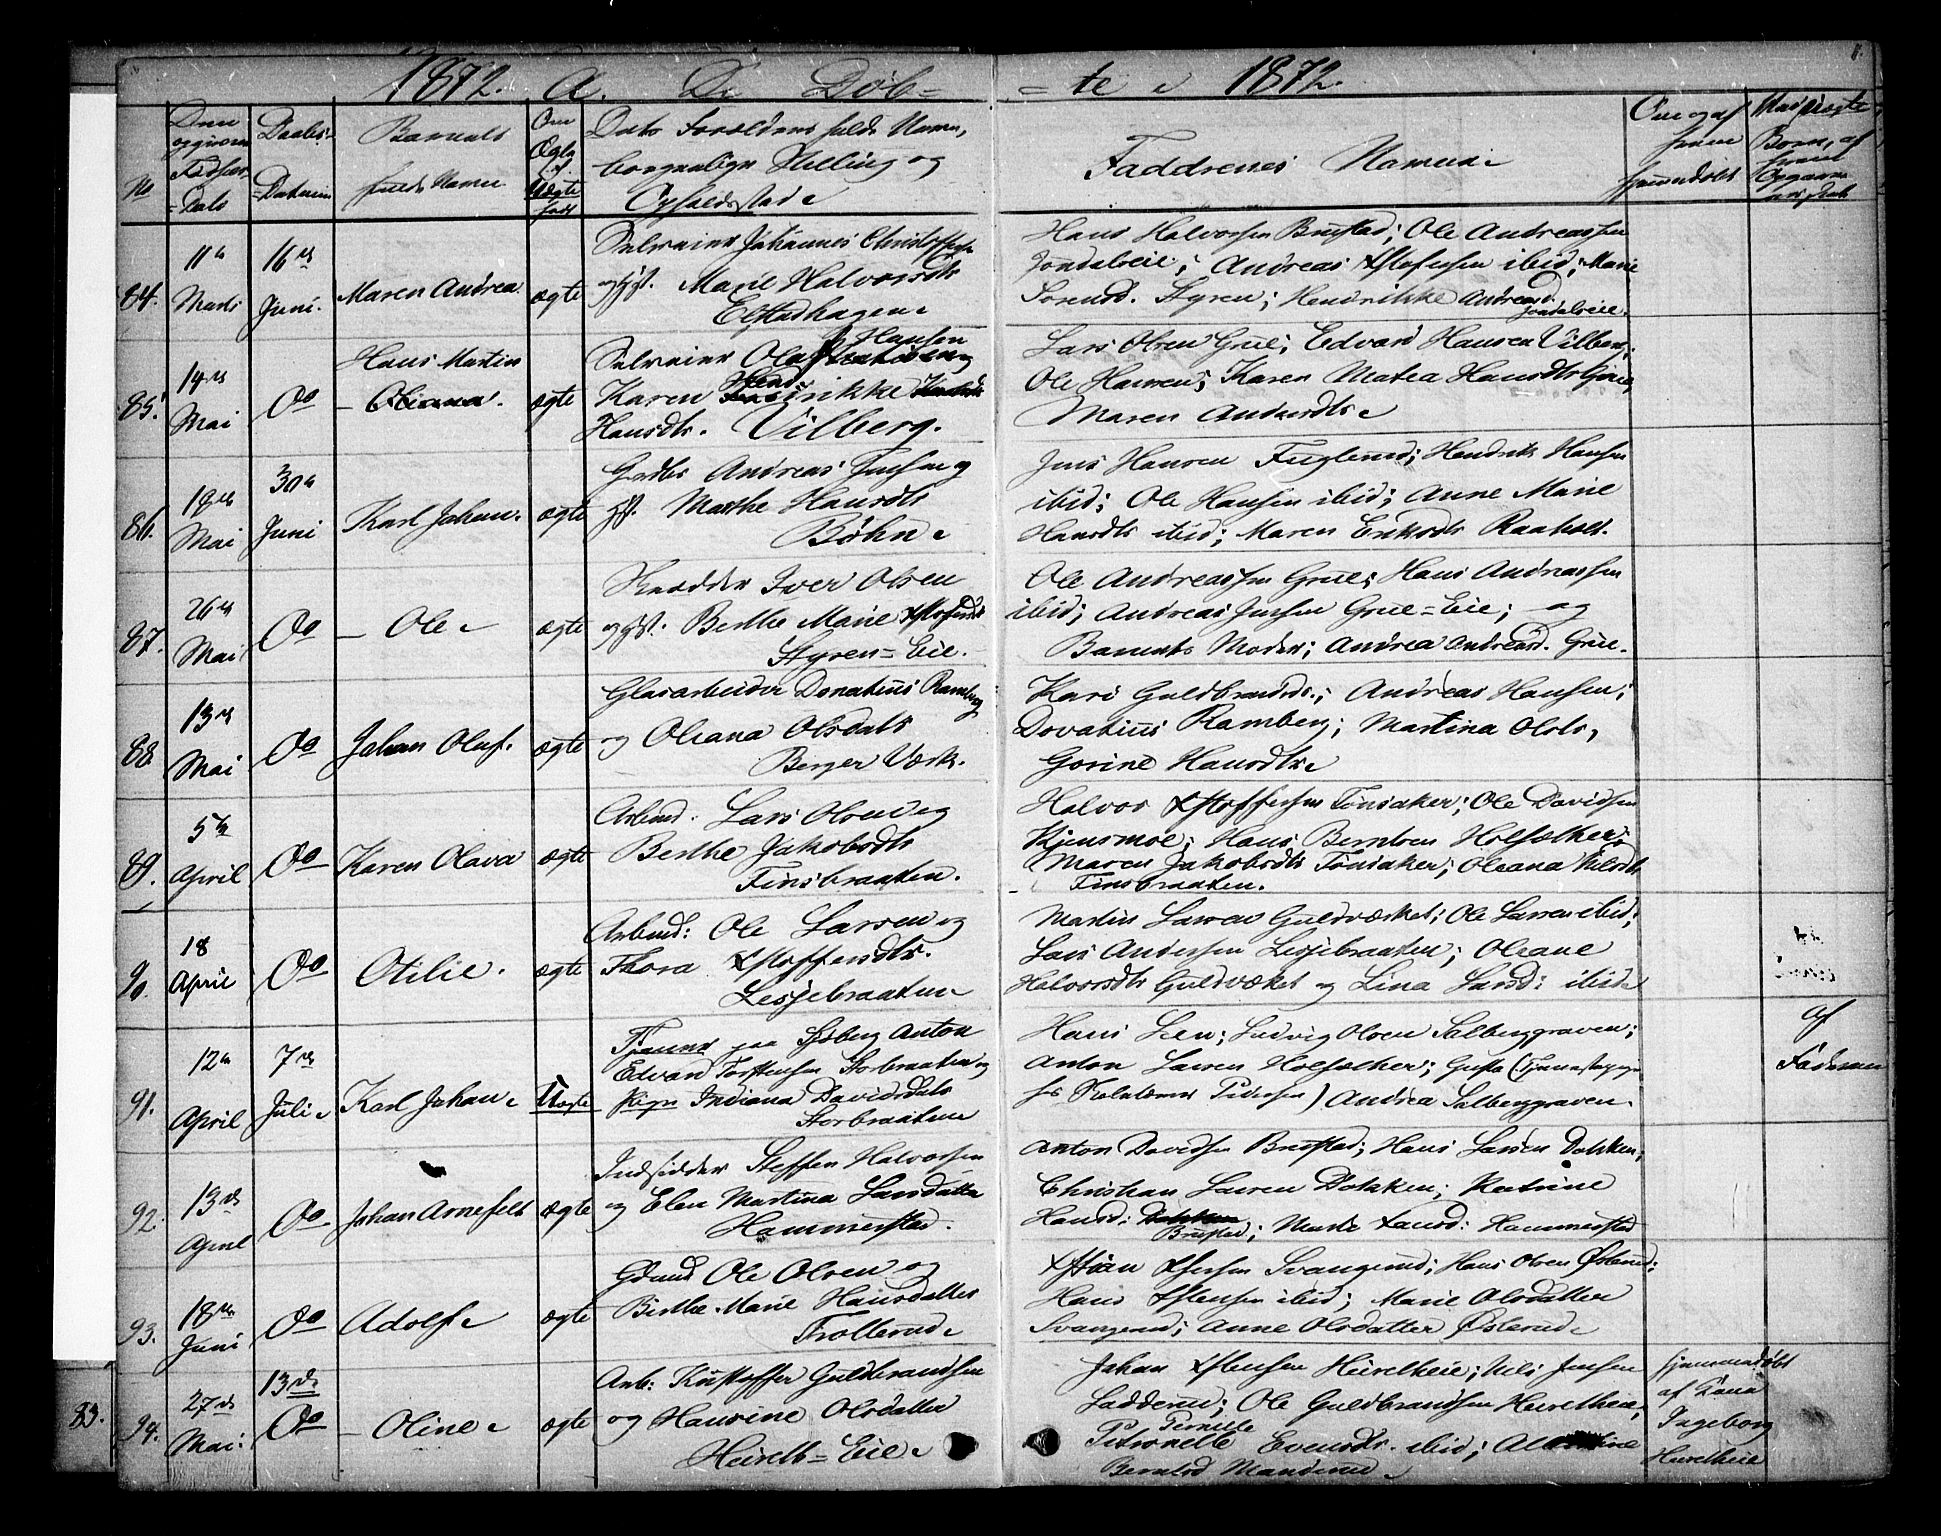 1872. A. De Døb- -te i 1872.
No
Døbe-
Datum
Barnets
fulde Navne
Om
Ægte
Uægte
født
Dets Forældres fulde Navne,
borgerlige Stilling og
Opholdssted
Faddrenes Navne
Om og af
hvem
hjemmedøbt
84.
11te
Marts
16de
Juni.
Maren Andrea
ægte
Selveier Johannes Christoffersen
Marie Halvorsdtr
Elstadhagen
Hans Halvorsen Brustad; Ole Andreassen
Jondaleie; Andreas Kstofersen ibid; Marie
Sørensd. Styren; Hendrikke Andreasd.
Jondaleie.
85.
14de
Mai
Do
Hans Martin
Oleana.
ægte
Hansen
Selveier Ole
Karen Hendrikke
Hansdtr. Vilberg.
Lars Olsen Grue; Edvard Hansen Vilberg;
Ole Hansen; Karen Matea Hansdtr Grue,
Maren Andersdtr.
86.
19de
Mai
30te
Juni
Karl Johan.
ægte
Grdbr Andreas Jensen og
Marthe Hansdtr
Bøhn.
Jens Hansen Fuglerud; Hendrik Hansen
ibid; Ole Hansen ibid; Anne Marie
Hansdtr ibid; Maren Eriksdtr Raaholt.
87.
26de
Mai
Do
Ole
ægte
Skrædder Iver Olsen
Berthe Marie Kstofersdtr
Styren-Eie.
Ole Andreassen Grue; Hans Andreassen
ibid; Andreas Jensen Grue-Eie; og
Barnets Moder; Andrea Andreasd. Grue.
88.
13de
Mai
Do
Johan Oluf.
ægte
Glasarbeider Donatius Ramberg
og Oleana Olsdatr
Berger Værk.
Kari Guldbrandsd.; Andreas Hansen;
Dovatius Ramberg; Martina Olsdtr,
Gorine Hansdtr.
89.
5te
April
Do
Karen Olava
ægte
Arbmd. Lars Olsen og
Berthe Jakobsdtr
Finsbraaten.
Halvor Kstoffersen Tønsaker; Ole Davidsen
Kjensmoe; Hans Berntsen Holsæther;
Maren Jakobsdtr Tønsaker; Oleana Nilsdtr
Finsbraaten.
90.
18
April
Do
Otilie.
ægte
Arbmd: Ole Larsen og
Thora Kstoffersdtr.
Lesjebraaten
Martin Larsen Guldværket; Ole Larsen ibid;
Lars Andersen Lesjebraaten; Oleane
Halvorsdtr Guldværket og Lina Larsd: ibid
91.
12te
April
7de
Juli
Karl Johan
Uægte
paa Sjøberg Anton
Edvard Torstensen Storbraaten og
Pigen Indiana Davidsdatr
Storbraaten
Hans Lien; Ludvig Olsen Salberggraven;
Anton Larsen Holsæther; Gusta (Tjenestepige
Pedersen) Andrea Salberggraven.
Af
Faderen
92.
13de
April
Do
Johan Arnefelt
ægte
Indsidder Steffen Halvorsen
og Elen Martina Larsdatter
Hammerstad.
Anton Davidsen Brustad; Hans Larsen Dokken;
Christian Larsen Dokken; Katrine
Hansd: Dokken
Brustad; Marte Larsd: Hammerstad
93.
18de
Juni
Do
Adolf
ægte
Grdmd Ole Olsen og
Birthe Marie Hansdatter
Trollerud
Kstian Svangerud; Hans Olsen Østerud;
Hans Kstensen ibid; Marie Olsdatter
Svangerud; Anne Olsdatter Østerud
94.
27de
Mai.
13de
Do
Oline
ægte
Arb: Kristoffer Guldbrandsen
og Hansine Olsdatter
Heireth-Eie
Johan Kstensen Heiretheie; Nils Jensen
Ladderud; Ole Guldbrandsen Heiretheie,
Pernille
Petronelle Evensdtr. ibid;
Berntsd Manderud
hjemmedøbt
af Kona
Ingeborg
Heiretheie
83.